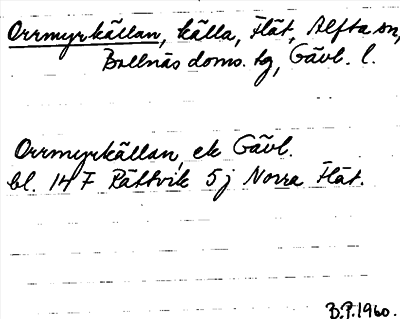 Orrmyrkällan, källa, Flät, Alfta sn,
Bollnäs doms. tg, Gävl. l.
Orrmyrkällan, ek Gävl.
bl. 14 F Rättvik 5j Norra Flät.
B.P. 1960.